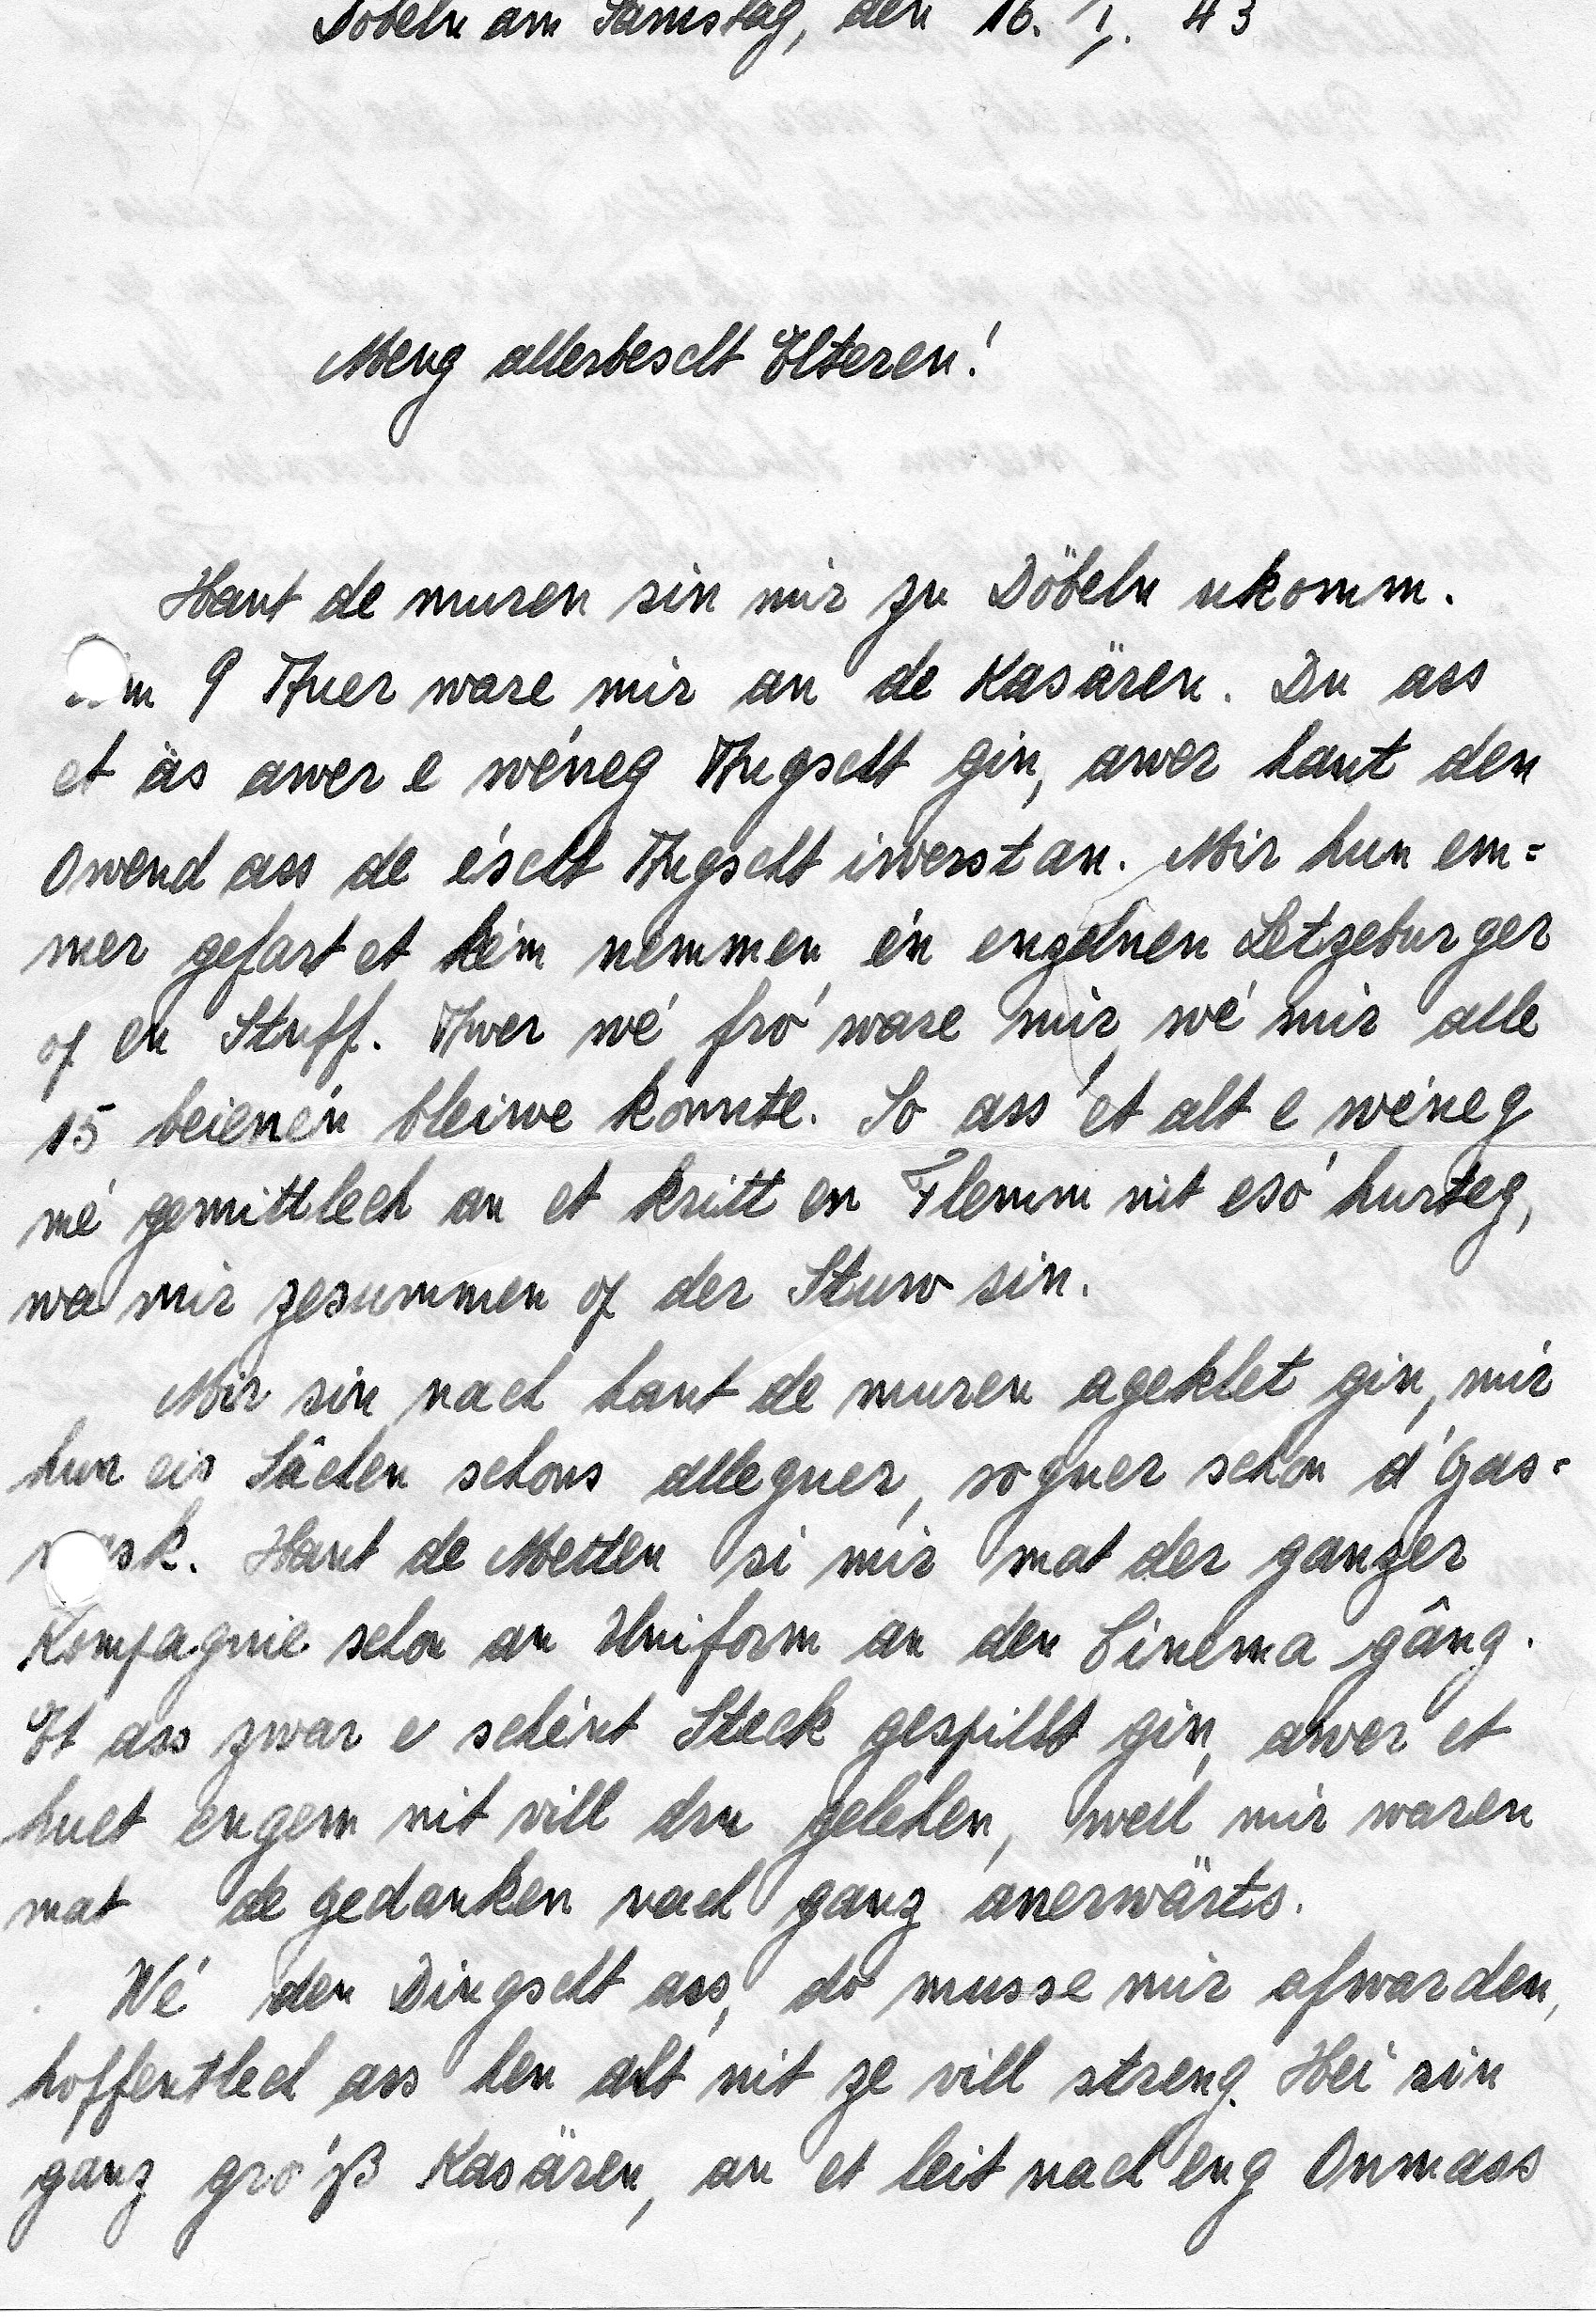 Döbeln am Samstag, den 16. I. 43
Meng allerbescht Elteren!
Haut de muren sin mir zu Döbeln ukomm.
Em 9 Auer ware mir an de Kasären. Du ass
et äs awer e wéneg Angscht gin, awer haut den
Owend ass de éscht Angscht iwerstan. Mir hun em=
mer gefart et kém nemmen én enzelnen Letzeburger
of en Stuff. Awer wé fró ware mir, wé mir alle
15 beienén bleiwe konnte. So ass et alt e wéneg
mé gemittlech an et kritt en Flemm nit esó hurteg,
wa mir zesummen of der Stuw sin.
Mir sin nach haut de muren ageklet gin, mir
hun eis Sâchen schons alleguer, soguer schon d'Gas=
mask. Haut de Metten si mir mat der ganzer
Kompagnie schon an Uniform an den Cinema gâng.
Et ass zwar e schént Steck gespillt gin, awer et
huet engem nit vill dru geleken, weil mir waren
mat de gedanken nach ganz anerwärts.
Wé den Dingscht ass, do musse mir ofwarden,
hoffentlech ass hen alt nit ze vill streng. Hei sin
ganz gró'ß Kasären, an et leit nach eng Onmass